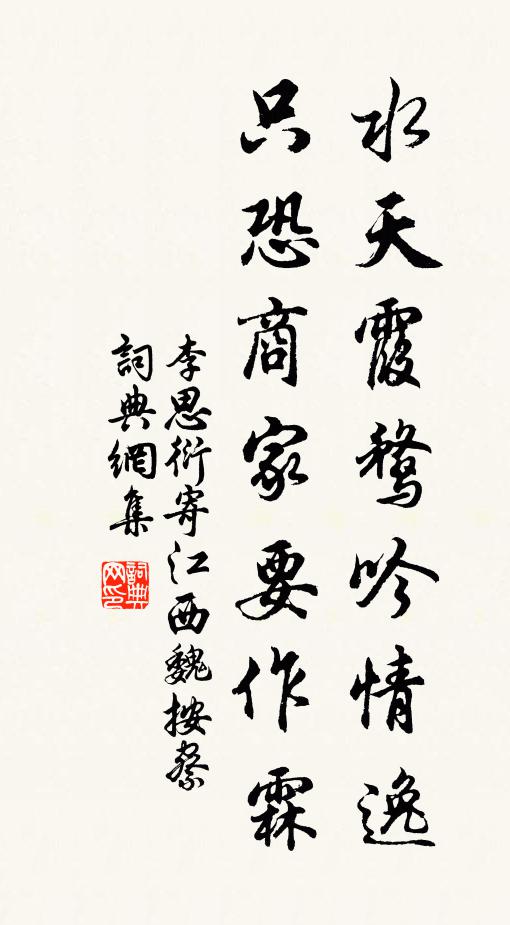 水天霞鶩吟情逸
只恐商家要作霖
李思衍寄江西魏按察
詞典網集
詞典
网印